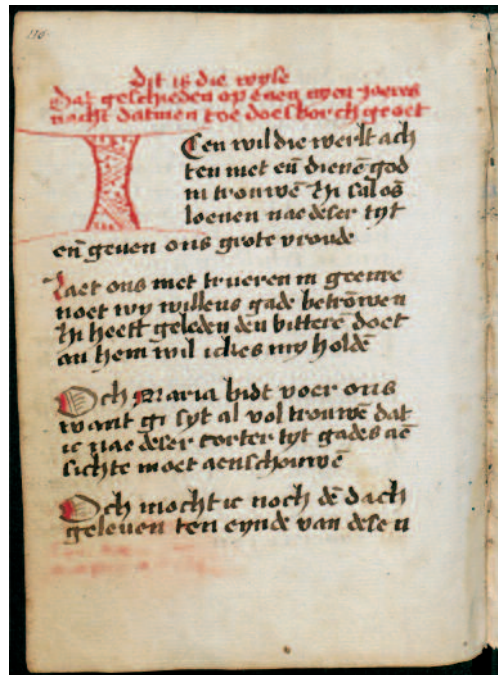 Dit is die wyse
Dat geschieden op enen nyen Jaers
nacht datmen toe doesborch geet
Icen wil die werlt ach
ten niet eñ dienē god
in trouwē Hi sal ōs
loenen nae deser tyt
eñ geuen ons grote vroude
Laet ons niet trueren in geenre
noet wy willens gade betrōwen
Hi heeft geleden den bitterē doet
an hem wil ickes my holdē
Och Maria bidt voer ons
want gi syt al vol trouwē dat
ic nae deser corter tyt gades aē
sichte moet aenschouwē
Och mocht ic noch dē dach
geleuen ten eynde van dese n